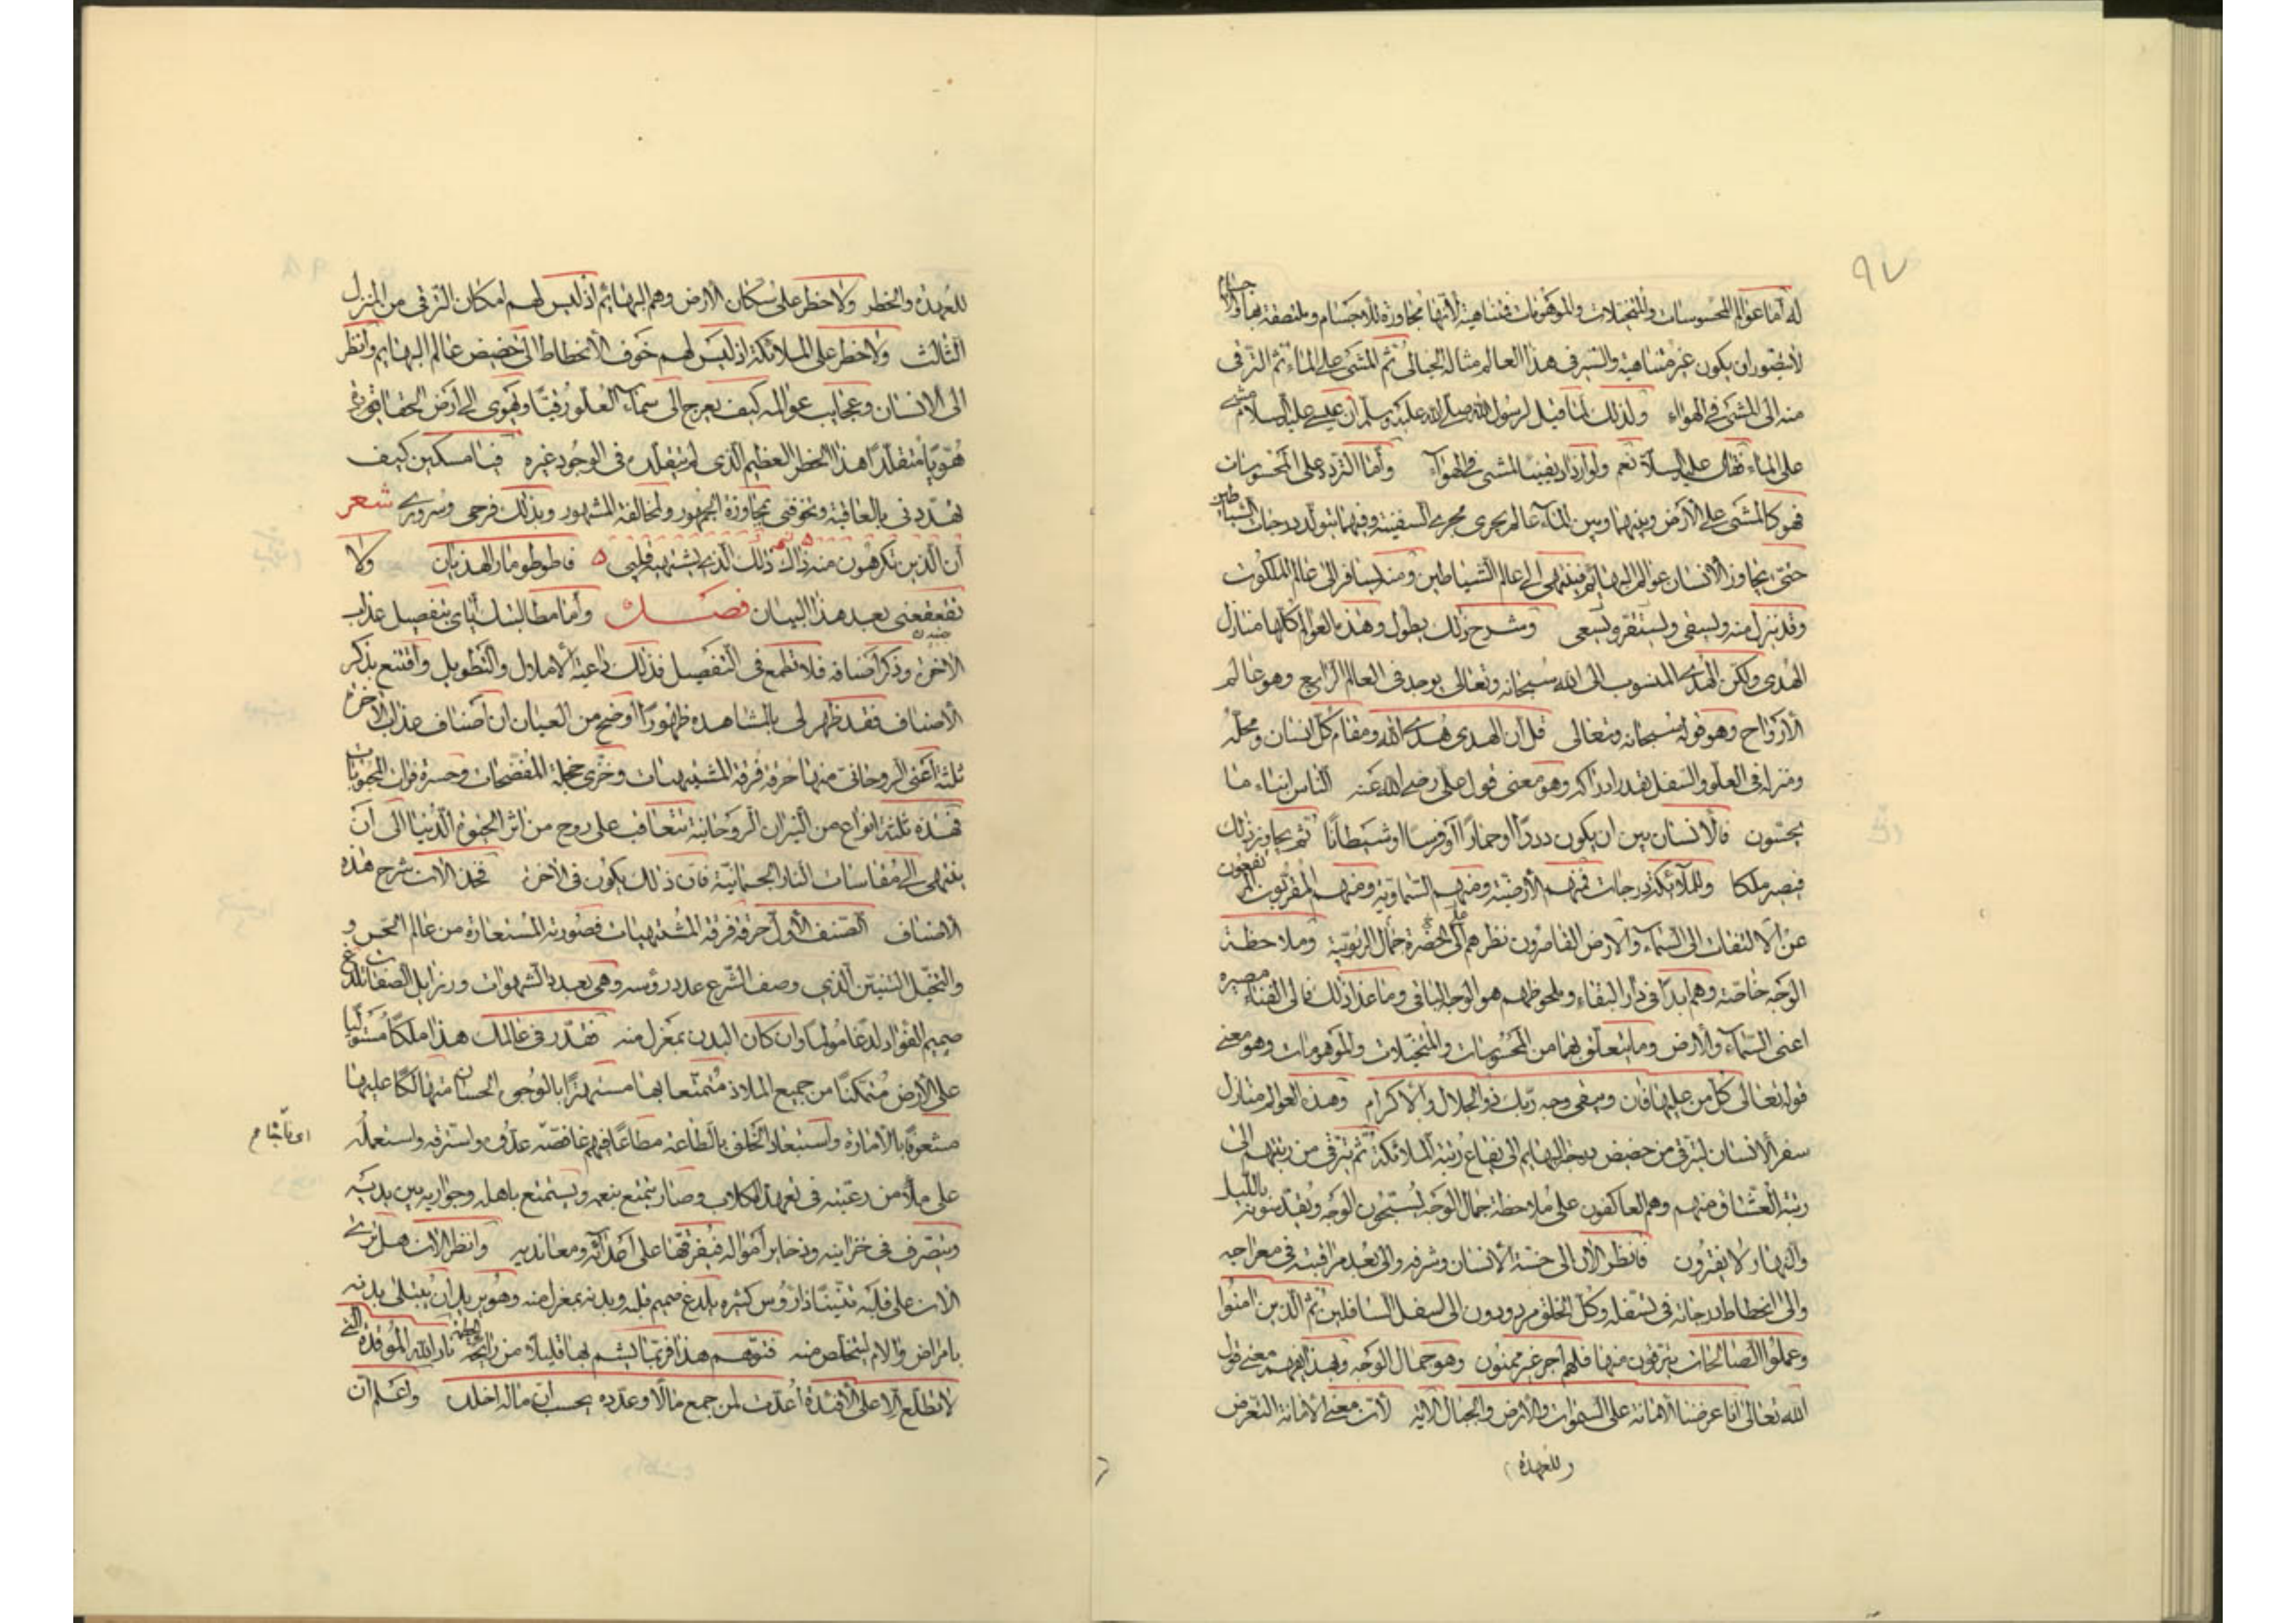 ٩٧
له اما عوالم المحسوسات والمتخيلات والموهومات فمتناهية لانها مجاورة للاجسام وملتصقة بها والاجسام
لا يتصور ان يكون غير متناهية والسير في هذا العالم مثاله الخيالي ثم المشي على الماء ثم الترقي
منه الى المشي في الهواء ولذلك لما قيل لرسول الله صلى الله عليه وسلم ان عيسى عليه السلام مشى
على الماء فقال عليه السلام نعم ولو ازداد يقينا لمشى في الهواء واما التردد على المحسوسات
فهو كالمشي على الارض وبينها وبين الماء عالم يجري مجرى السفينة وفيها يتولد درجات الشياطين
حتى يجاوز الانسان عوالم البهائم فينتهي الى عالم الشياطين ومنه يسافر الى عالم الملكوت
وقد ينزل منه ويستقر وشرح ذلك يطول وهذه العوالم كلها منازل
الهدى ولكن الهدى المنسوب الى الله سبحانه وتعالى يوجد في العالم الرابع وهو عالم
الارواح وهو قوله سبحانه وتعالى قل ان الهدى هدى الله ومقام كل انسان ومحله
ومنزله في العلو والسفل بقدر ادراكه وهو معنى قول علي رضي الله عنه الناس ابناء ما
يحسنون فالانسان بين ان يكون دودا او حمارا او فرسا او شيطانا ثم يجاوز ذلك
فيصير ملكا وللملائكة درجات فمنهم الارضية ومنهم السماوية ومنهم المقربون المرتفعون
عن الالتفات الى السماء والارض القاصرون نظرهم على حضرة جمال الربوبية وملاحظة
الوجه خاصة وهم ابدا في دار البقاء وملحوظهم هو الوجه الباقي وما عدا ذلك فالى الفناء مصيره
اعني السماء والارض وما يتعلق بهما من المحسوسات والمتخيلات والموهومات وهو معنى
قوله تعالى كل من عليها فان ويبقى وجه ربك ذو الجلال والاكرام وهذه العوالم منازل
سفر الانسان ليترقى من حضيض درجة البهايم الى يفاع رتبة الملائكة ثم يترقى من رتبتهم الى
رتبة العشاق منهم وهم العاكفون على ملاحظة جمال الوجه يسبحون الوجه ويقدسونه بالليل
والنهار لا يفترون فانظر الان الى خسة الانسان وشرفه والى بعد مراقيه في معراجه
والى انحطاط درجاته في تسفله وكل الخلق مردودون الى اسفل السافلين ثم الذين امنوا
وعملوا الصالحات يترقون منها فلهم اجر غير ممنون وهو جمال الوجه وبهذا يفهم معنى قول
الله تعالى انا عرضنا الامانة على السموات والارض والجبال الاية لان معنى الامانة التعرض
للعهدة
للعهدة والخطر ولا خطر على سكان الارض وهم البهائم اذ ليس لهم امكان الترقي من المنزل
الثالث ولا خطر على الملائكة اذ ليس لهم خوف الانحطاط الى حضيض عالم البهايم وانظر
الى الانسان وعجايب عوالمه كيف يعرج الى سماء العلو رقيا ويهوي الى ارض الحقارة
هويا متقلدا هذا الخطر العظيم الذي لم يتقلده في الوجود غيره فيا مسكين كيف
تهددني بالعاقبة وتخوفني بمجاوزة الجمهور ولمخالفة المشهور وبذلك فرحي وسروري شعر
ان الذين تكرهون منه ذاك الذي يشتهيه قلبي فاطو طومار الهذيان ولا
تقعقعني بعد هذا البيان فصل واما مطالبتك اياي بتفصيل عذاب
الاخرة وذكر اصنافه فلا تطمع في التفصيل فذلك داعية الاملال والتطويل واقتنع بذكر
الاصناف فقد ظهر لي بالمشاهدة ظهورا اوضح من العيان ان اصناف عذاب الاخرة
ثلثة اعني الروحاني منها حرقة فرقة المشتهيات وخزي خجلة المفضحات وحسرة فوات المحبوبات
فهذه ثلثة انواع من النيران الروحانية تتعاقب على روح من اثر الحيوة الدنيا الى ان
ينتهي الى مقاسات النار الجسمانية فان ذلك يكون في الاخرة فخذ الان شرح هذه
الاصناف الصنف الاول حرقة فرقة المشتهيات فصورته المستعارة من عالم الحس و
والتخيل التنين الذي وصف الشرع عدد رؤسه وهي بعدد الشهوات ورذايل الصفات تلدغ
صميم الفؤاد لدغا مولما وان كان البدن بمعزل منه فقدر في عالمك هذا ملكا مستوليا
على الارض متمكنا من جميع الملاذ متمتعا بها مستهترا بالوجوه الحسان متهالكا عليها
مشعوفا بالامارة واستبعاد الخلق بالطاعة مطاعا فيهم غافصه عدوه واسترقه واستعمله
اى فاجأه م
على ملأ من رعيته في تعهد الكلاب وصار يتمتع بنعمه ويستمتع باهله وجواريه بين يديه
ويتصرف في خزاينه وذخاير امواله فيفرقها على اعدائه ومعانديه وانظر الان هل ترى
الان على قلبه تنينا ذا رؤس كثيرة يلدغ صميم قلبه وبدنه بمعزل منه وهو يريد ان يبتلى بدنه
بامراض والام ليتخلص منه فتوهم هذا فربما تشم بها قليلا من رائحة الحطمة نار الله الموقدة التي
لا تطلع الا على الافئدة اعدت لمن جمع مالا وعدده يحسب ان ماله اخلده واعلم ان